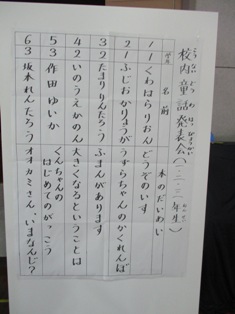 校内童話発表会(1・2・3年生)
学年 名前 本のだいめい
1 1 くわはらりおん どうぞのいす
2 1 ふじおかりょうが うずらちゃんのかくれんぼ
3 2 ふまんがあります
4 2 いのうえかのん 大きくなるということは
5 3 作田ゆいか くんちゃんの
はじめてのがっこう
6 3 坂本れんたろう オオカミさん、いまなんじ?